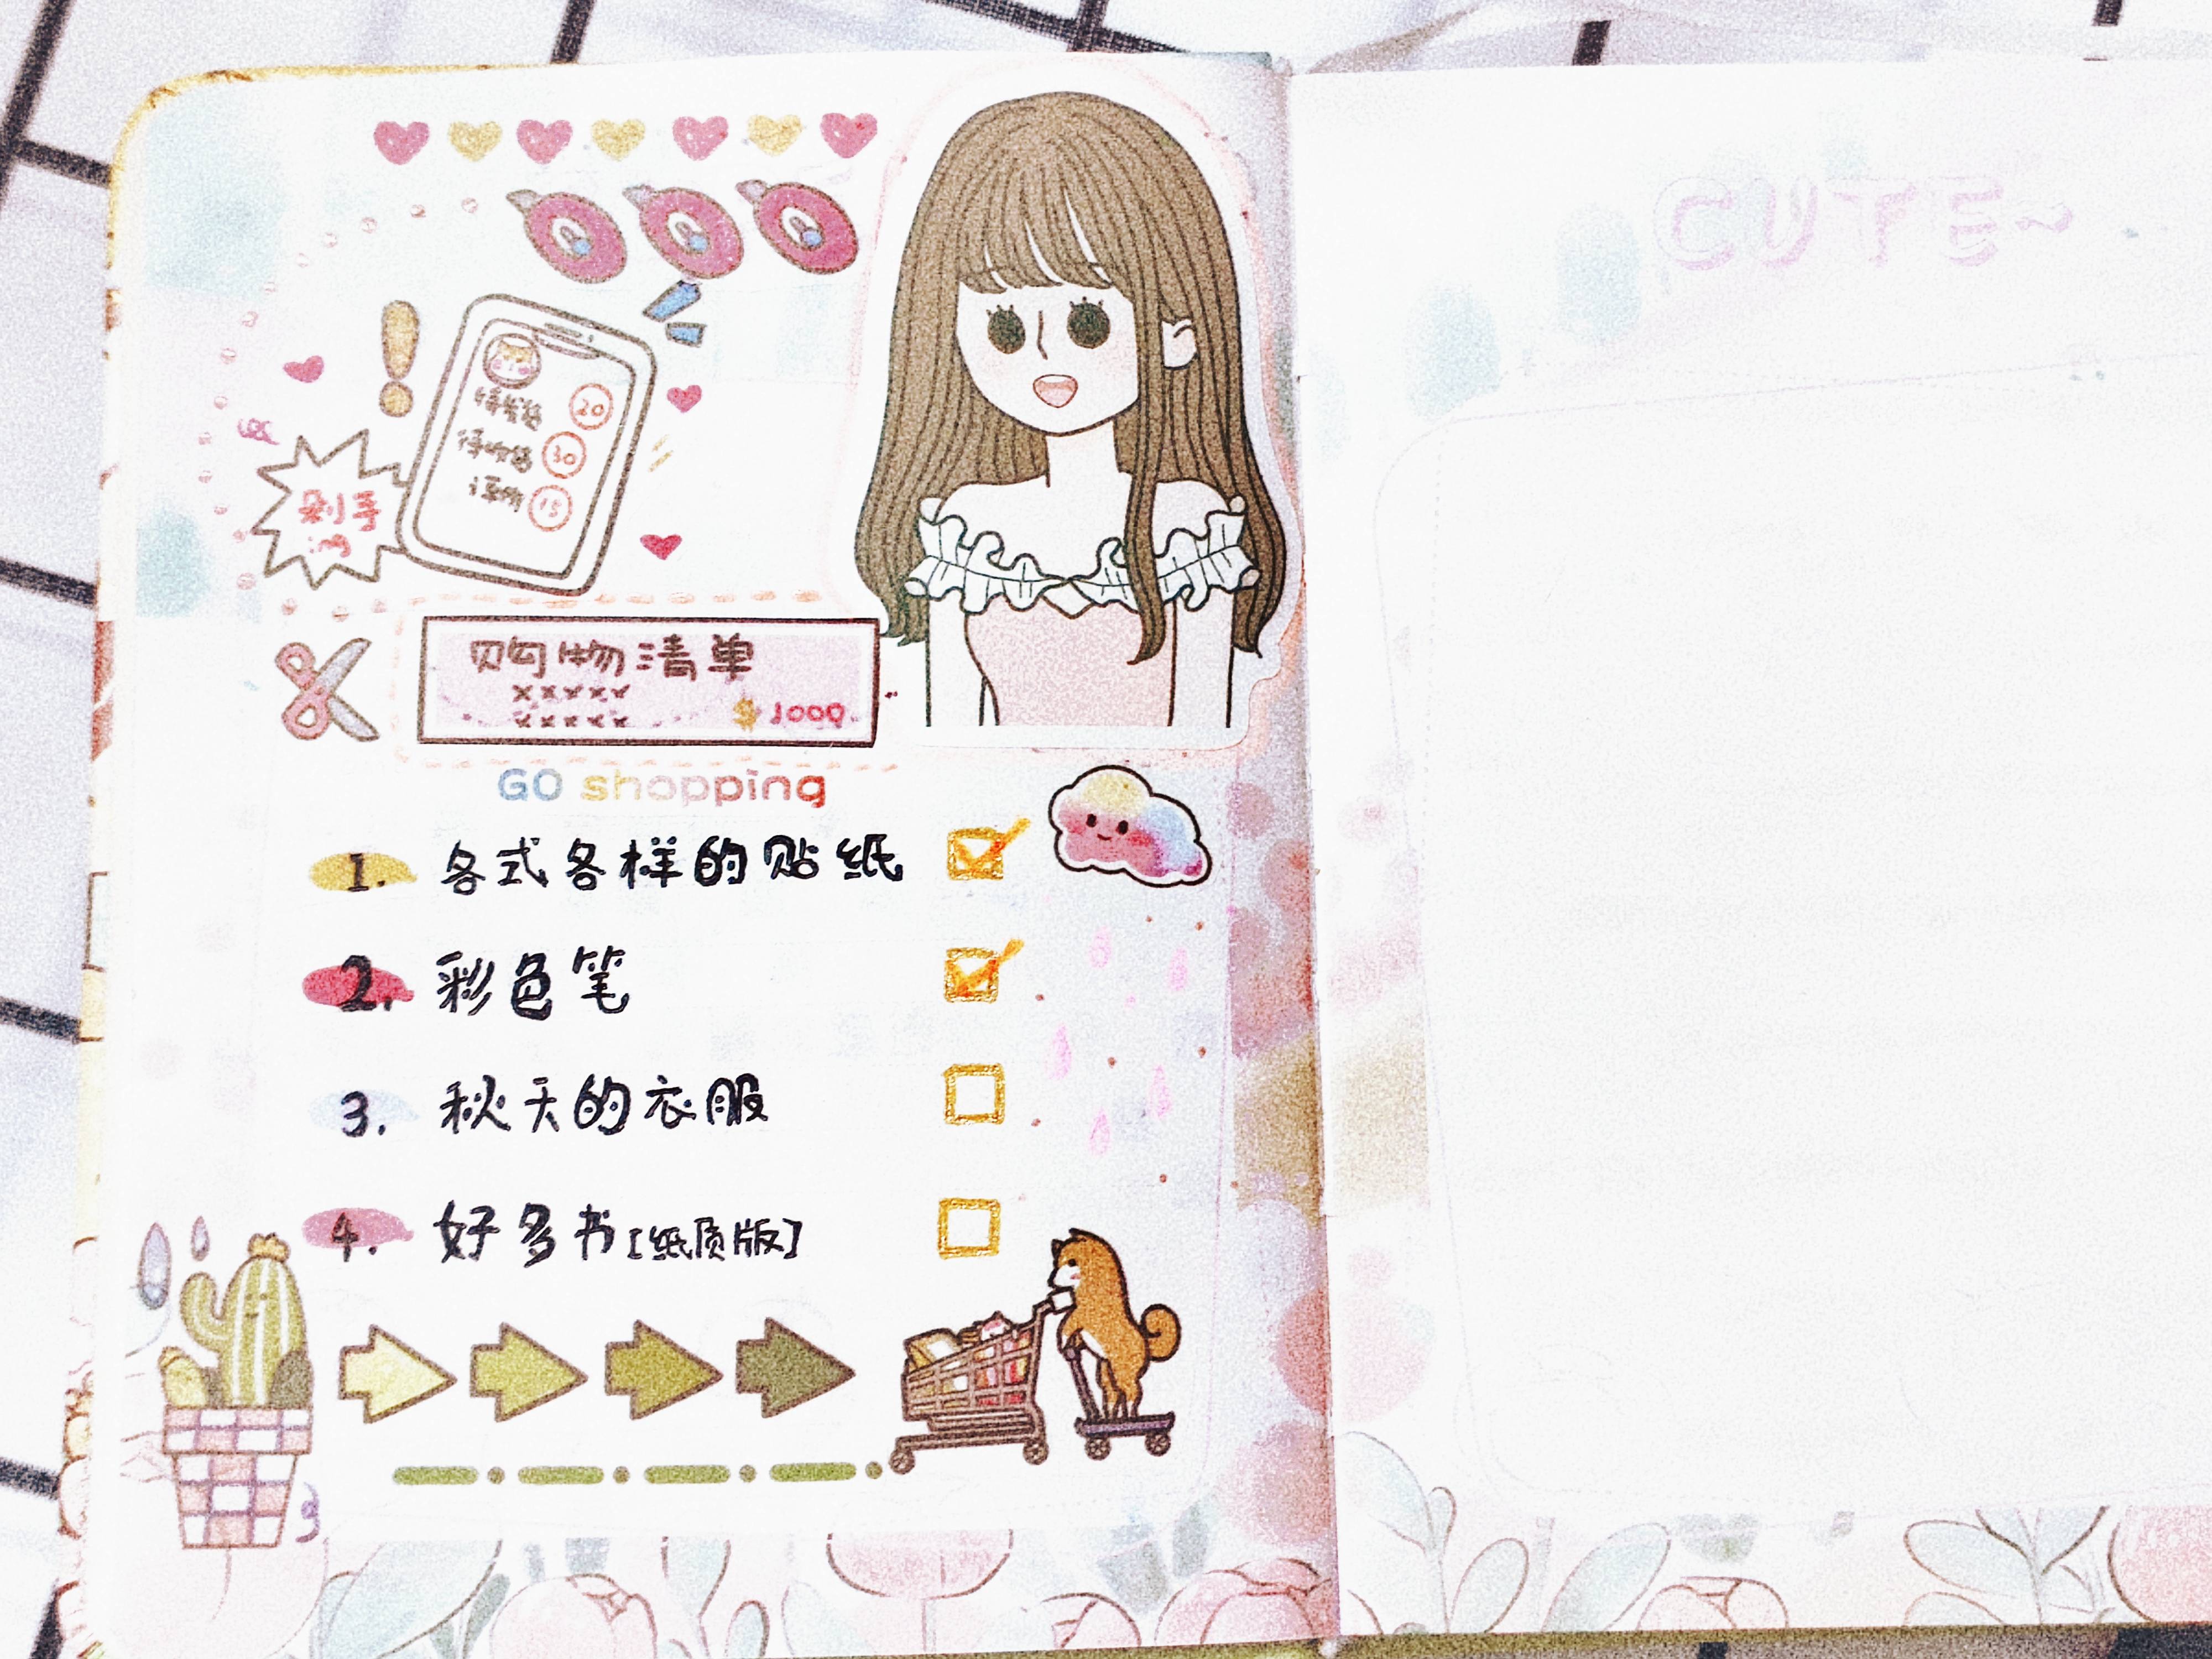 CUTE~
待发货 20
待收货 30
退款 15
剁手
购物清单
×××××
×××××
$1000
GO shopping
1. 各式各样的贴纸
2. 彩色笔
3. 秋天的衣服
4. 好多书[纸质版]